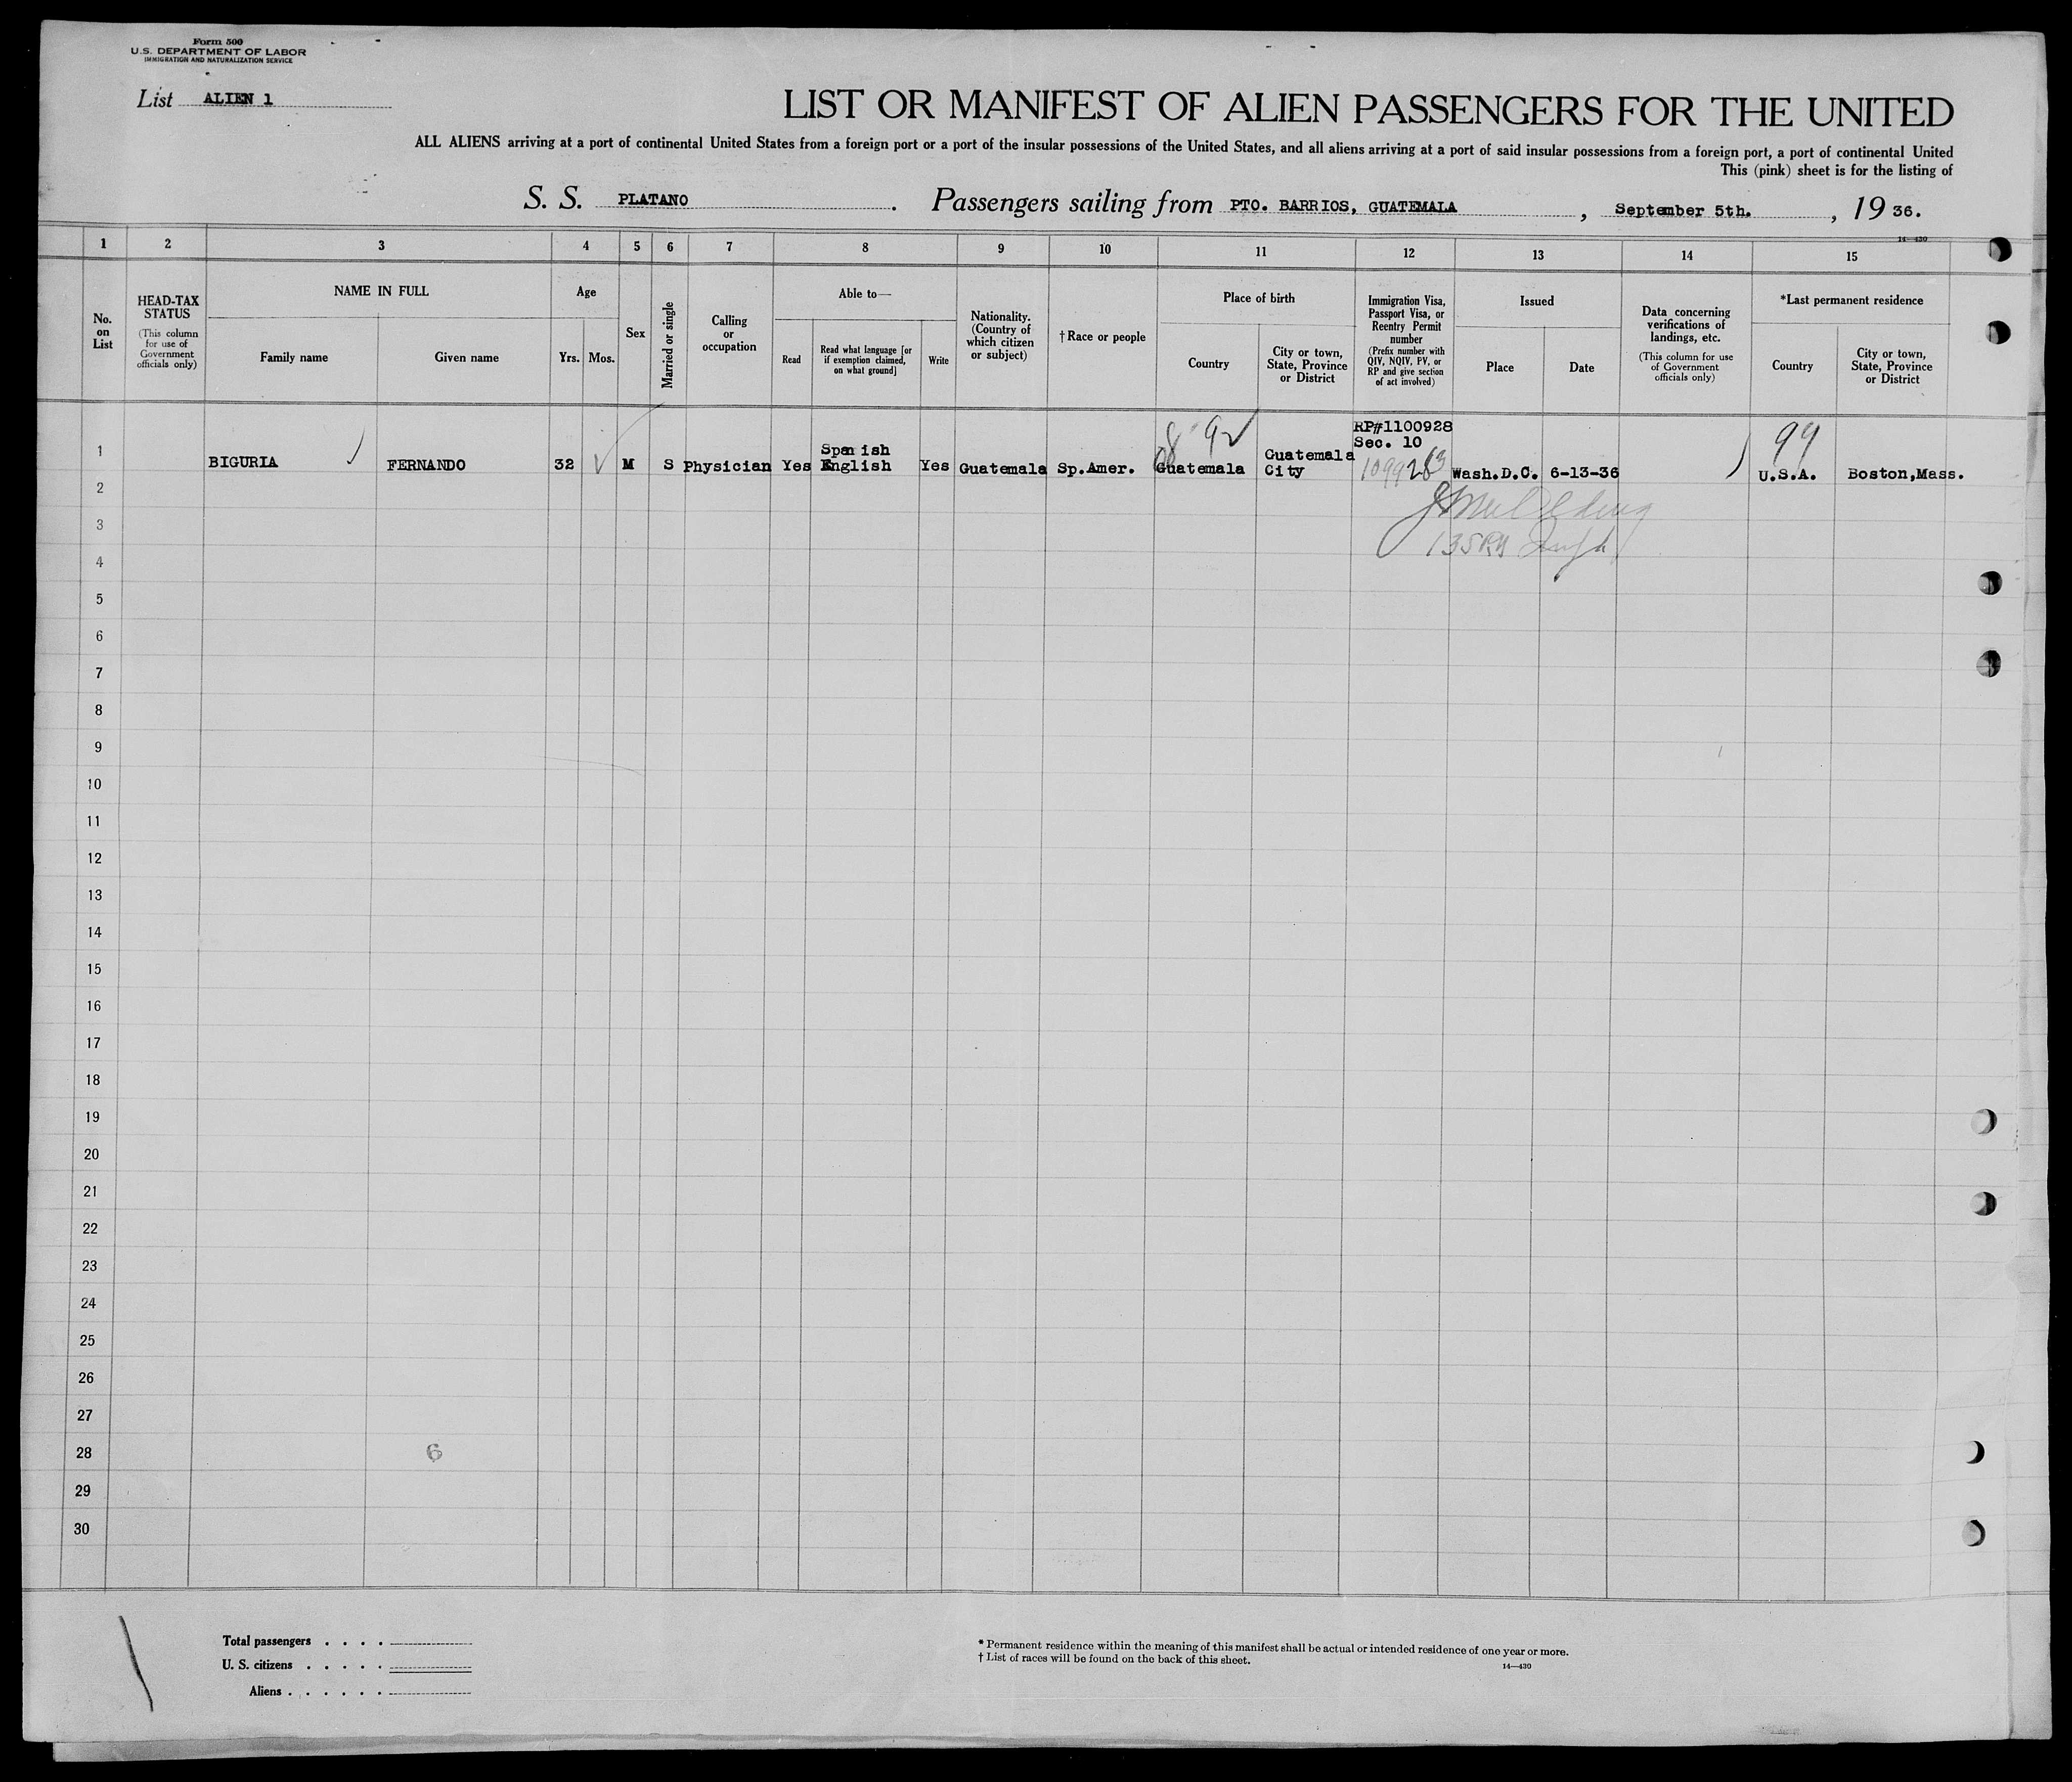 Form 500
U.S. DEPARTMENT OF LABOR
IMMIGRATION AND NATURALIZATION SERVICE
List ALIEN 1
LIST OR MANIFEST OF ALIEN PASSENGERS FOR THE UNITED
ALL ALIENS arriving at a port of continental United States from a foreign port or a port of the insular possessions of the United States, and all aliens arriving at a port of said insular possessions from a foreign port, a port of continental United
This (pink) sheet is for the listing of
S. S. PLATANO. Passengers sailing from PTO. BARRIOS, GUATEMALA, September 5th., 1936.
14—430
1 2 3 4 5 6 7 8 9 10 11 12 13 14 15
No. on List
HEAD-TAX STATUS
(This column for use of Government officials only)
NAME IN FULL
Family name
Given name
Age
Yrs.
Mos.
Sex
Married or single
Calling or occupation
Able to—
Read
Read what language [or if exemption claimed, on what ground]
Write
Nationality. (Country of which citizen or subject)
†Race or people
Place of birth
Country
City or town, State, Province or District
Immigration Visa, Passport Visa, or Reentry Permit number
(Prefix number with QIV, NQIV, PV, or RP and give section of act involved)
Issued
Place
Date
Data concerning verifications of landings, etc.
(This column for use of Government officials only)
*Last permanent residence
Country
City or town, State, Province or District
1 BIGURIA FERNANDO 32 M S Physician Yes Spanish English Yes Guatemala Sp.Amer. Guatemala Guatemala City RP#1100928 Sec. 10 Wash.D.C. 6-13-36 99 U.S.A. Boston,Mass.
2
3
4
5
6
7
8
9
10
11
12
13
14
15
16
17
18
19
20
21
22
23
24
25
26
27
28 6
29
30
Total passengers . . . .
U. S. citizens . . . . .
Aliens . . . . . .
* Permanent residence within the meaning of this manifest shall be actual or intended residence of one year or more.
† List of races will be found on the back of this sheet.
14—430